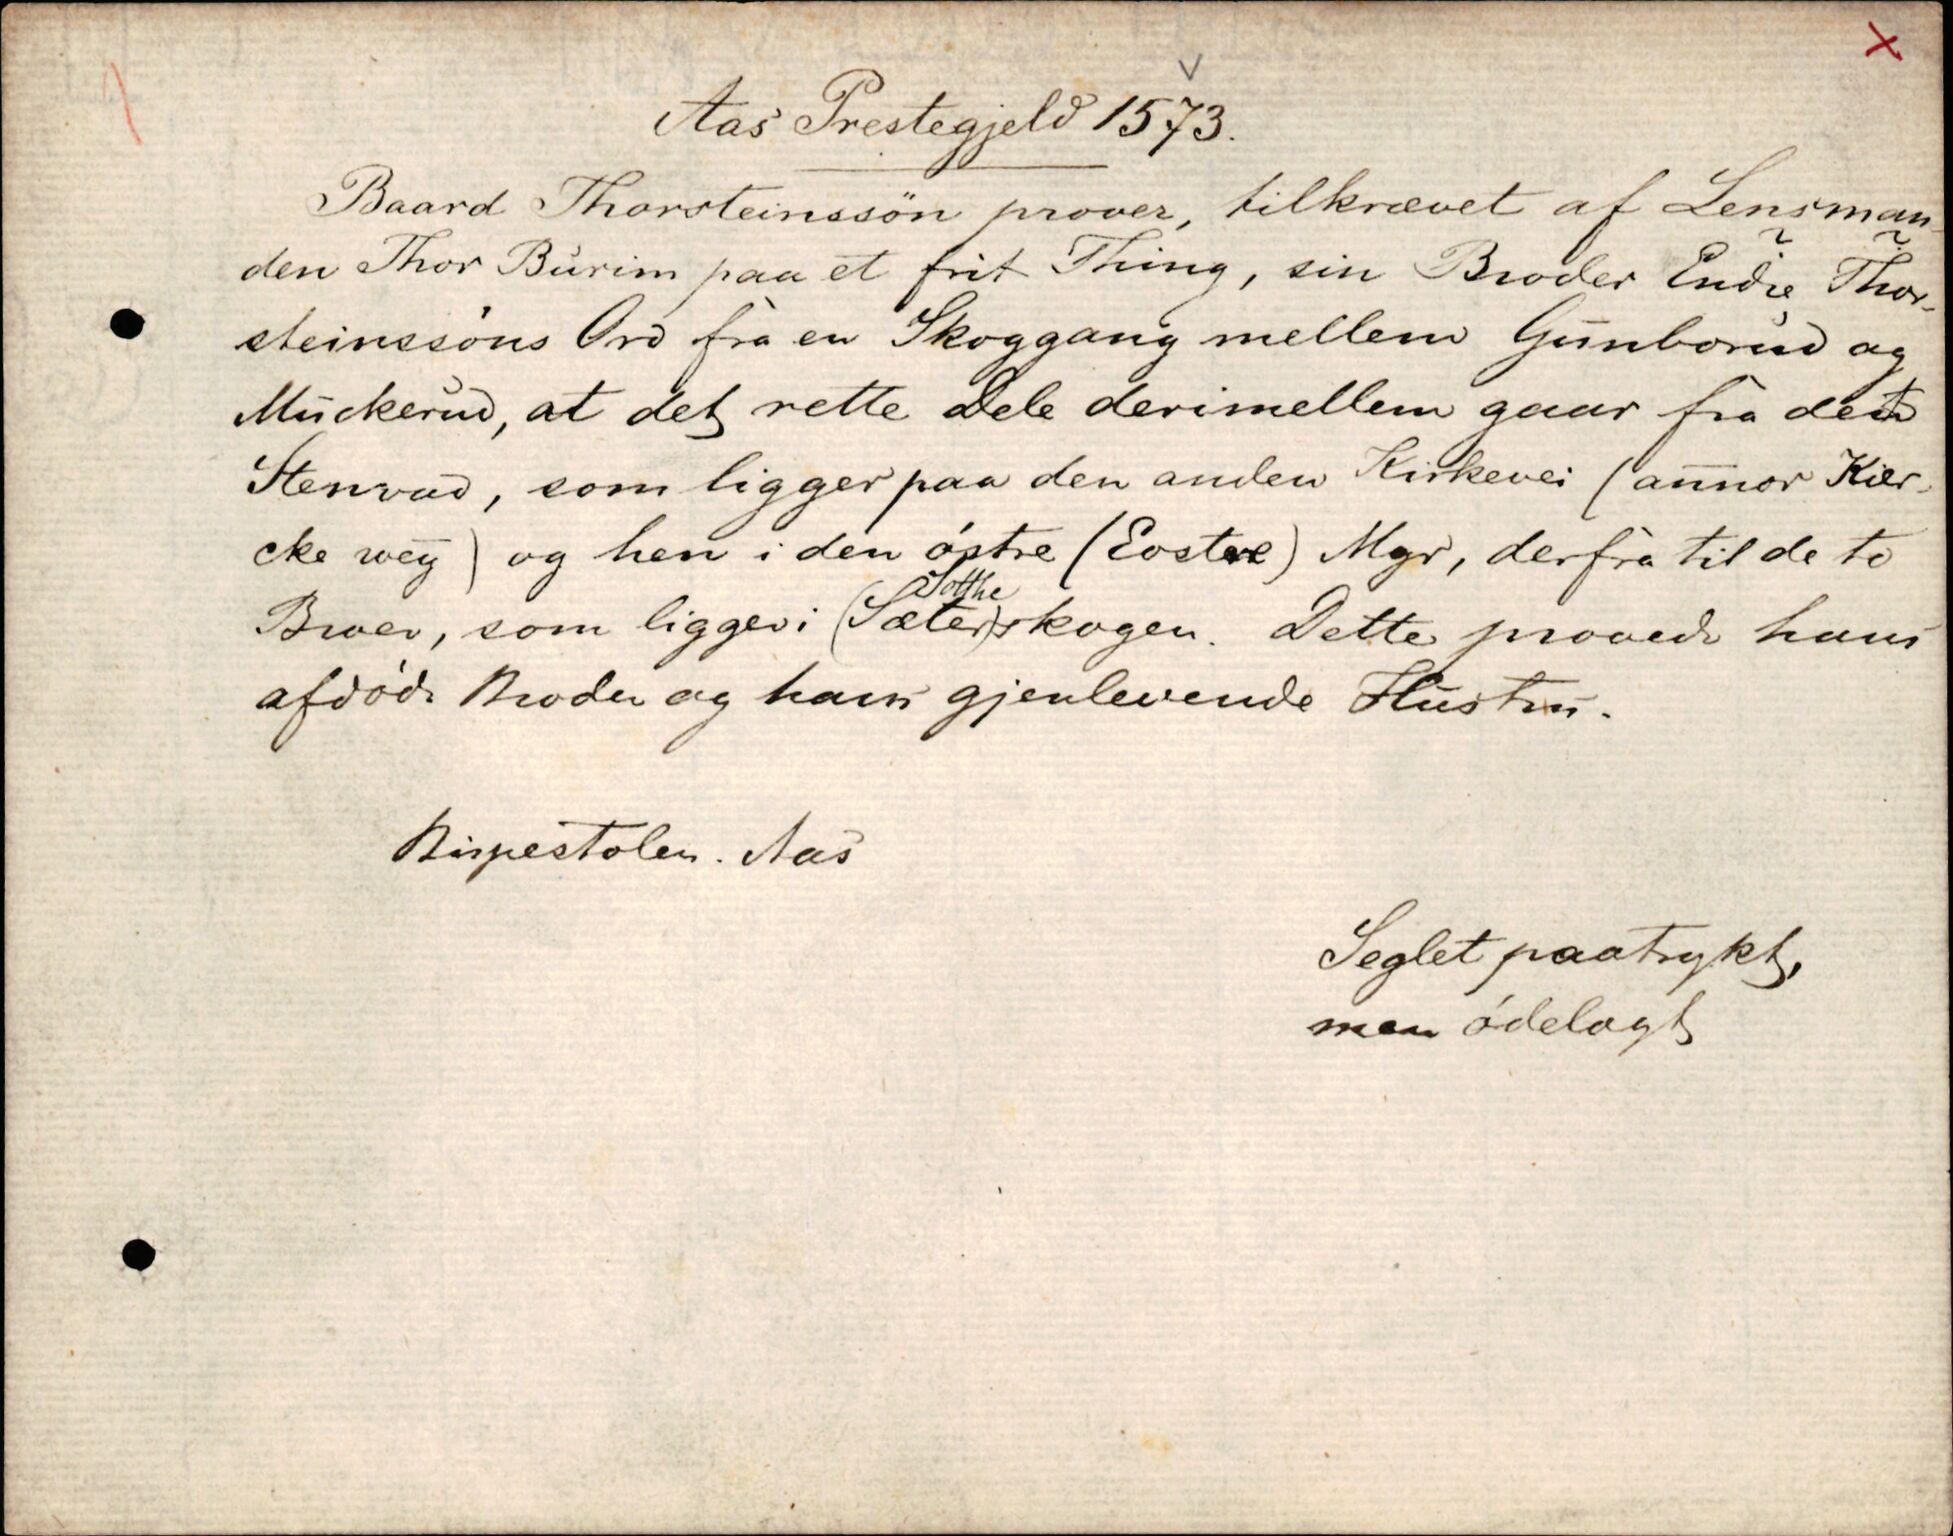 Aas Prestegjeld 1573.
Baard Thorsteinssön prover, tilkrævet af Lensman-
den Thor Burim paa et frit Thing, sin Broder Endre Thor-
steinssöns Ord fra en Skoggang mellem Gunborud og
Muckerud, at det rette Dele derimellem gaar fra det
Stenvad, som ligger paa den anden Kirkevei (annor Kier-
cke weÿ) og hen i den östre (Eostre) Myr, derfra til de to
Broer, som ligger i (Sæter)skogen. Dette provede hans
Sotthe
afdöde Broder og hans gjenlevende Hustru.
Bispestolen. Aas
Seglet paatrykt,
men ödelagt